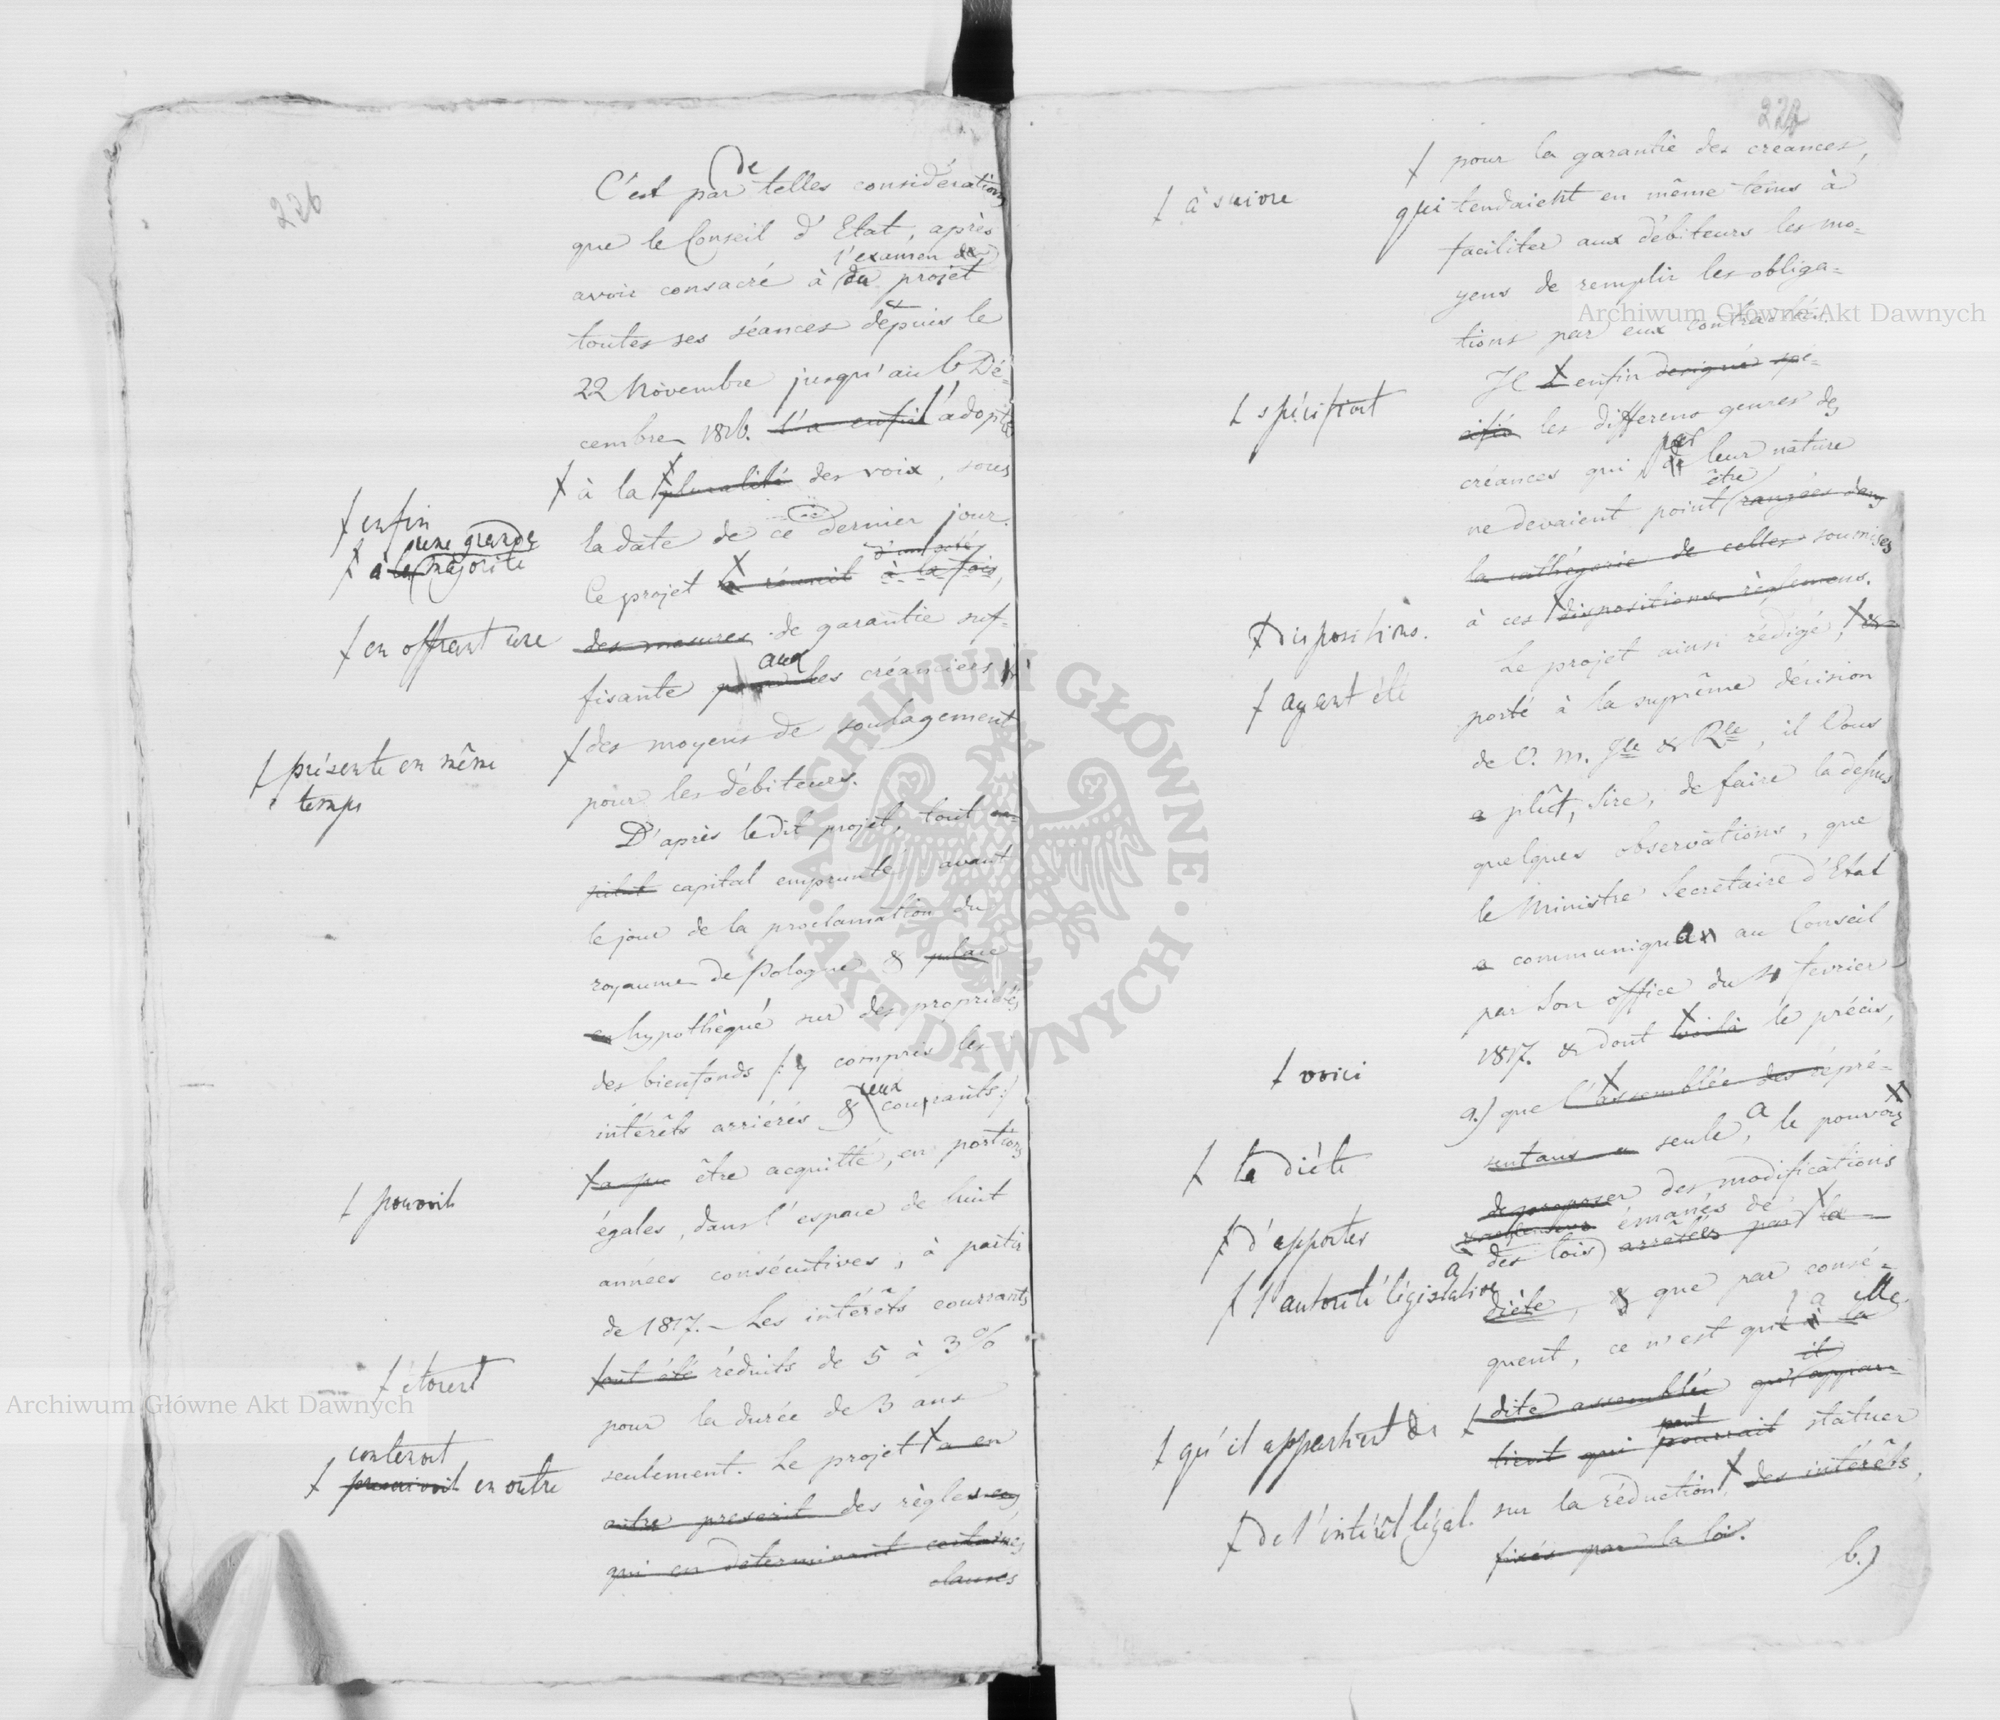 226
C'est par de telles considérations
que le Conseil d'Etat, après
l'examen de
avoir consacré à du projet
toutes ses séances depuis le
22 Novembre jusqu'au 6 Dé-
cembre 1816. l'a enfin l'adopta
à la pluralité des voix, sous
la date de ce dernier jour.
d'un côté
Ce projet a réunit à la fois,
des mesures de garantie suf-
aux
fisante pour les créanciers
des moyens de soulagement
pour les débiteurs.
D'après le dit projet, tout
capital emprunté avant
le jour de la proclamation du
royaume de Pologne & place
en hypothèqué sur des propriétés
des bienfonds /: y compris les
ceux
intérêts arriérés & courrants :/
a pu être acquitté, en portions
égales, dans l'espace de huit
années consécutives, à partir
de 1817. – Les intérêts courrants
ont été réduits de 5 à 3%
pour la durée de 3 ans
seulement. Le projet a en
outre prescrit des règles
qui en déterminant certaines
clauses
enfin
une grande
à la majorité
en offrant une
présente en même
temps
pouvoit
étoient
contenoit
prescrivoit en outre
pour la garantie des créances,
qui tendaient en même tems à
faciliter aux débiteurs les mo-
yens de remplir les obliga-
tions par eux contractées.
Il enfin designé spé-
cifié les differens genres de
par
créances qui leur nature
être
ne devaient point rangées dans
la cathégorie de celles soumises
à ces dispositions règlemens.
Le projet ainsi rédigé,
porté à la suprême décision
de V. M. Ile & Rle, il Vous
a plût, Sire, de faire la dessus
quelques observations, que
le Ministre Secrétaire d'Etat
a communiqua au Conseil
par Son office du 4 fevrier
1817. & dont voilà le précis,
a.) que l'assemblée des répré-
sentans a seule, a le pouvoir
de proposer des modifications
émanés de
à des lois arrêtées par la
diète, & que par consé-
quent, ce n'est qu'à la
dite assemblée qu'il appar-
peut
tient qui pourrait statuer
sur la réduction des intérêts,
fixés par la loi.
b.)
à suivre
spécifioit
dispositions.
ayant été
voici
la diète
d'apporter
l'autorité législative
qu'il appartient de
de l'intérêt légal.
Archiwum Główne Akt Dawnych
Archiwum Główne Akt Dawnych
ARCHIWUM GŁÓWNE · AKT DAWNYCH ·